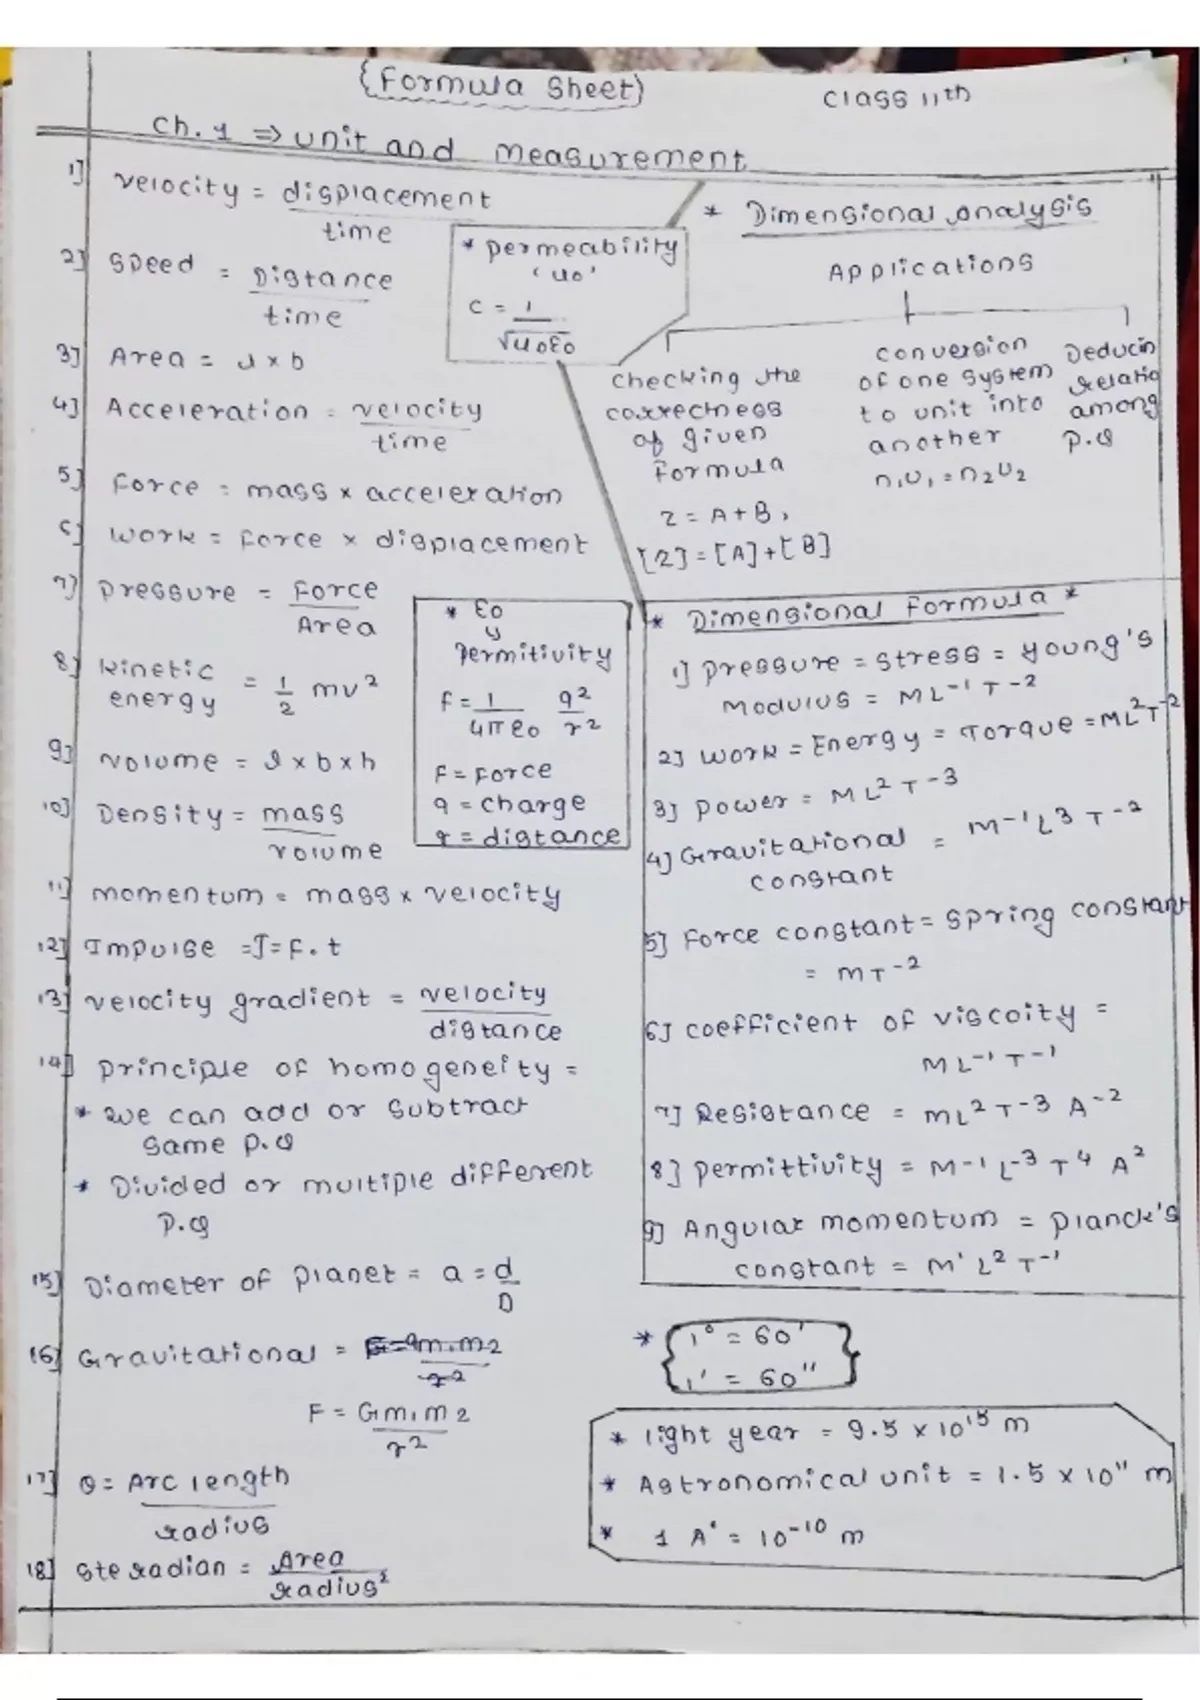 {Formula Sheet}
Class 11th
Ch. 1 ⇒ unit and measurement
1] velocity = displacement
time
2] Speed = Distance
time
3] Area = l × b
4] Acceleration = velocity
time
5] Force = mass × acceleration
6] work = Force × displacement
7] pressure = Force
Area
8] kinetic
energy = 1/2 mv²
9] volume = l × b × h
10] Density = mass
volume
11] momentum = mass × velocity
12] Impulse = J = F. t
13] velocity gradient = velocity
distance
14] principle of homogeneity =
* we can add or subtract
same p.Q
* Divided or multiple different
p.Q
15] Diameter of planet = a = d
D
16] Gravitational =
F = Gm₁m₂
r²
17] θ = Arc length
radius
18] Steradian = Area
radius²
* permeability
'u₀'
c = 1
√u₀ε₀
* ε₀
y
permitivity
F = 1 q²
4πε₀ r²
F = Force
q = charge
r = distance
* Dimensional analysis
Applications
checking the
correctness
of given
Formula
z = A + B,
[z] = [A] + [B]
conversion
of one system
to unit into
another
n₁u₁ = n₂u₂
Deducin
relatio
among
p.Q
* Dimensional Formula *
1] pressure = stress = young's
modulus = ML⁻¹T⁻²
2] work = Energy = Torque = ML²T⁻²
3] power = ML²T⁻³
4] Gravitational = M⁻¹L³T⁻²
constant
5] Force constant = spring constant
= MT⁻²
6] coefficient of viscoity =
ML⁻¹T⁻¹
7] Resistance = ML²T⁻³A⁻²
8] permittivity = M⁻¹L⁻³T⁴A²
9] Angular momentum = planck's
constant = M¹L²T⁻¹
* {1° = 60'
1' = 60"}
* light year = 9.5 × 10¹⁵ m
* Astronomical unit = 1.5 × 10¹¹ m
* 1 A° = 10⁻¹⁰ m